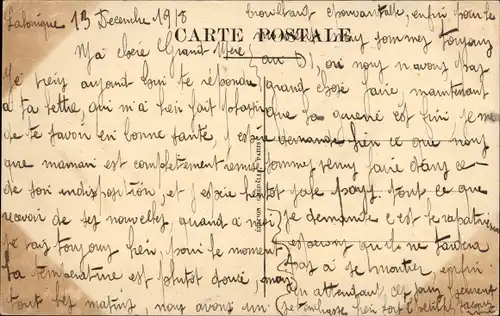 Salonique 13 Decembre 1918
CARTE POSTALE
Ma chère Grand Mère
Je viens aujourd'hui te repondre
a ta lettre qui m'a bien fait plaisir
de te savoir en bonne santé, j'espère
que maman est completement remise
de son indisposition, et j'espère bientot
recevoir de ses nouvelles, quand a moi
je vais toujours bien, pour le moment
la temperature est plutot douce, mais
tout les matins, nous avons un
brouillard epouvantable, enfin pour le
nous sommes toujours
au D, ou nous n avons pas
grand chose faire maintenant
que la guerre est fini je me
demande bien ce que nous
sommes venu faire dans ce
sale pays. tout ce que
je demande c'est le rapatriement
esperons qu'il ne tardera
pas a se montrer, enfin
en attendant ces jours
je t'embrasse bien fort ton petit fils Jacques